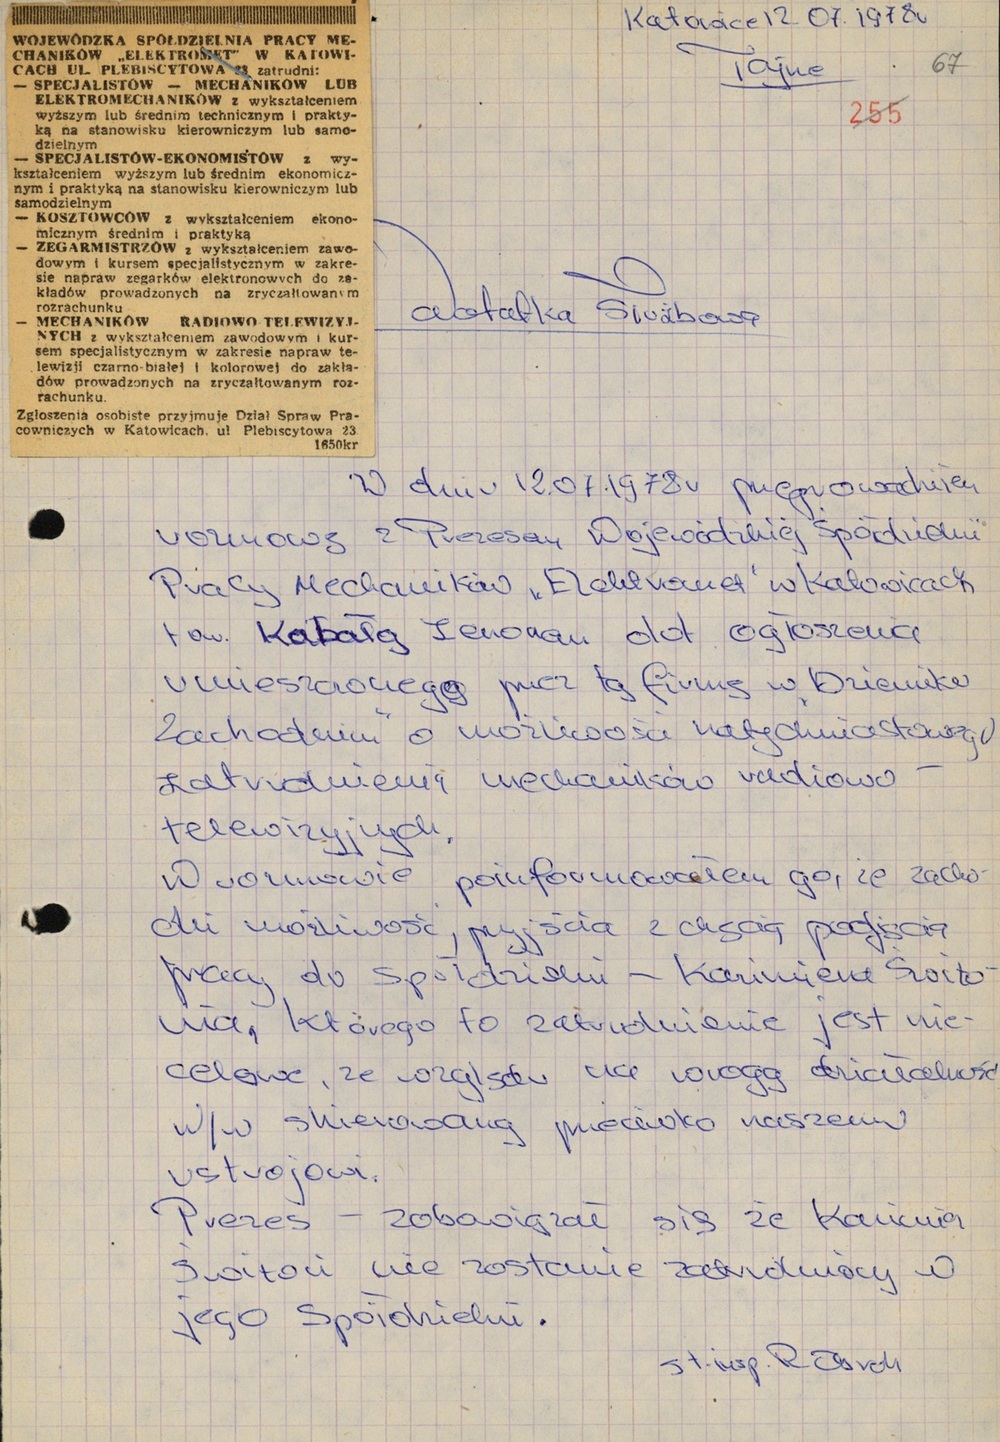 Katowice 12.07.1978r
Tajne
67
255
WOJEWÓDZKA SPÓŁDZIELNIA PRACY ME-
CHANIKÓW „ELEKTROMET" W KATOWI-
CACH UL. PLEBISCYTOWA 23 zatrudni:
— SPECJALISTÓW — MECHANIKÓW LUB
ELEKTROMECHANIKÓW z wykształceniem
wyższym lub średnim technicznym i prakty-
ką na stanowisku kierowniczym lub samo-
dzielnym
— SPECJALISTÓW-EKONOMISTÓW z wy-
kształceniem wyższym lub średnim ekonomicz-
nym i praktyką na stanowisku kierowniczym lub
samodzielnym
— KOSZTOWCÓW z wykształceniem ekono-
micznym średnim i praktyką
— ZEGARMISTRZÓW z wykształceniem zawo-
dowym i kursem specjalistycznym w zakre-
sie napraw zegarków elektronowych do za-
kładów prowadzonych na zryczałtowanym
rozrachunku
— MECHANIKÓW RADIOWO-TELEWIZYJ-
NYCH z wykształceniem zawodowym i kur-
sem specjalistycznym w zakresie napraw te-
lewizji czarno-białej i kolorowej do zakła-
dów prowadzonych na zryczałtowanym roz-
rachunku.
Zgłoszenia osobiste przyjmuje Dział Spraw Pra-
cowniczych w Katowicach, ul Plebiscytowa 23
1650kr
Notatka Służbowa
W dniu 12.07.1978r przeprowadziłem
rozmowę z Prezesem Wojewódzkiej Spółdzielni
Pracy Mechaników „Elektromet" w Katowicach
tow. Kabałą Zenonem dot ogłoszenia
umieszczonego przez tą firmę w „Dzienniku
Zachodnim" o możliwości natychmiastowego
zatrudnienia mechaników radiowo –
telewizyjnych.
W rozmowie poinformowałem go, że zacho-
dzi możliwość, przyjścia z chęcią podjęcia
pracy do spółdzielni – Kazimierza Świto-
nia, którego to zatrudnienie jest nie-
celowe, ze względu na wrogą działalność
w/w skierowaną przeciwko naszemu
ustrojowi.
Prezes – zobowiązał się że Kazimierz
Świtoń nie zostanie zatrudniony w
jego Spółdzielni.
st. insp. R